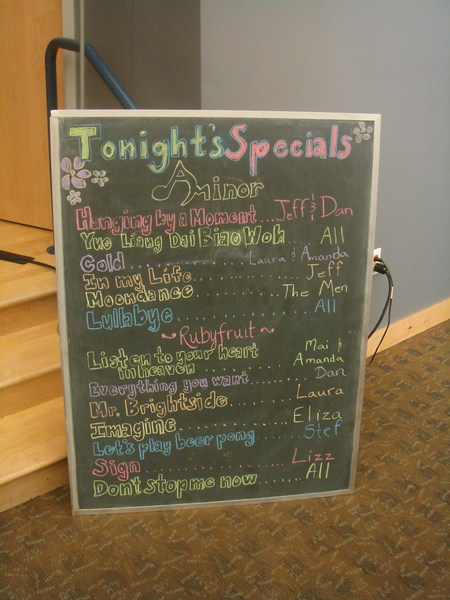 Tonight's Specials
A minor
Hanging by a Moment...Jeff & Dan
Yue Liang Dai Biao Woh... All
Cold............Laura & Amanda
In my Life............Jeff
Moondance............The Men
Lullabye............All
~Rubyfruit~
Listen to your heart
in heaven......Mai & Amanda
Everything you want......Dan
Mr. Brightside......Laura
Imagine............Eliza
Let's play beer pong......Stef
Sign............Lizz
Don't stop me now......All